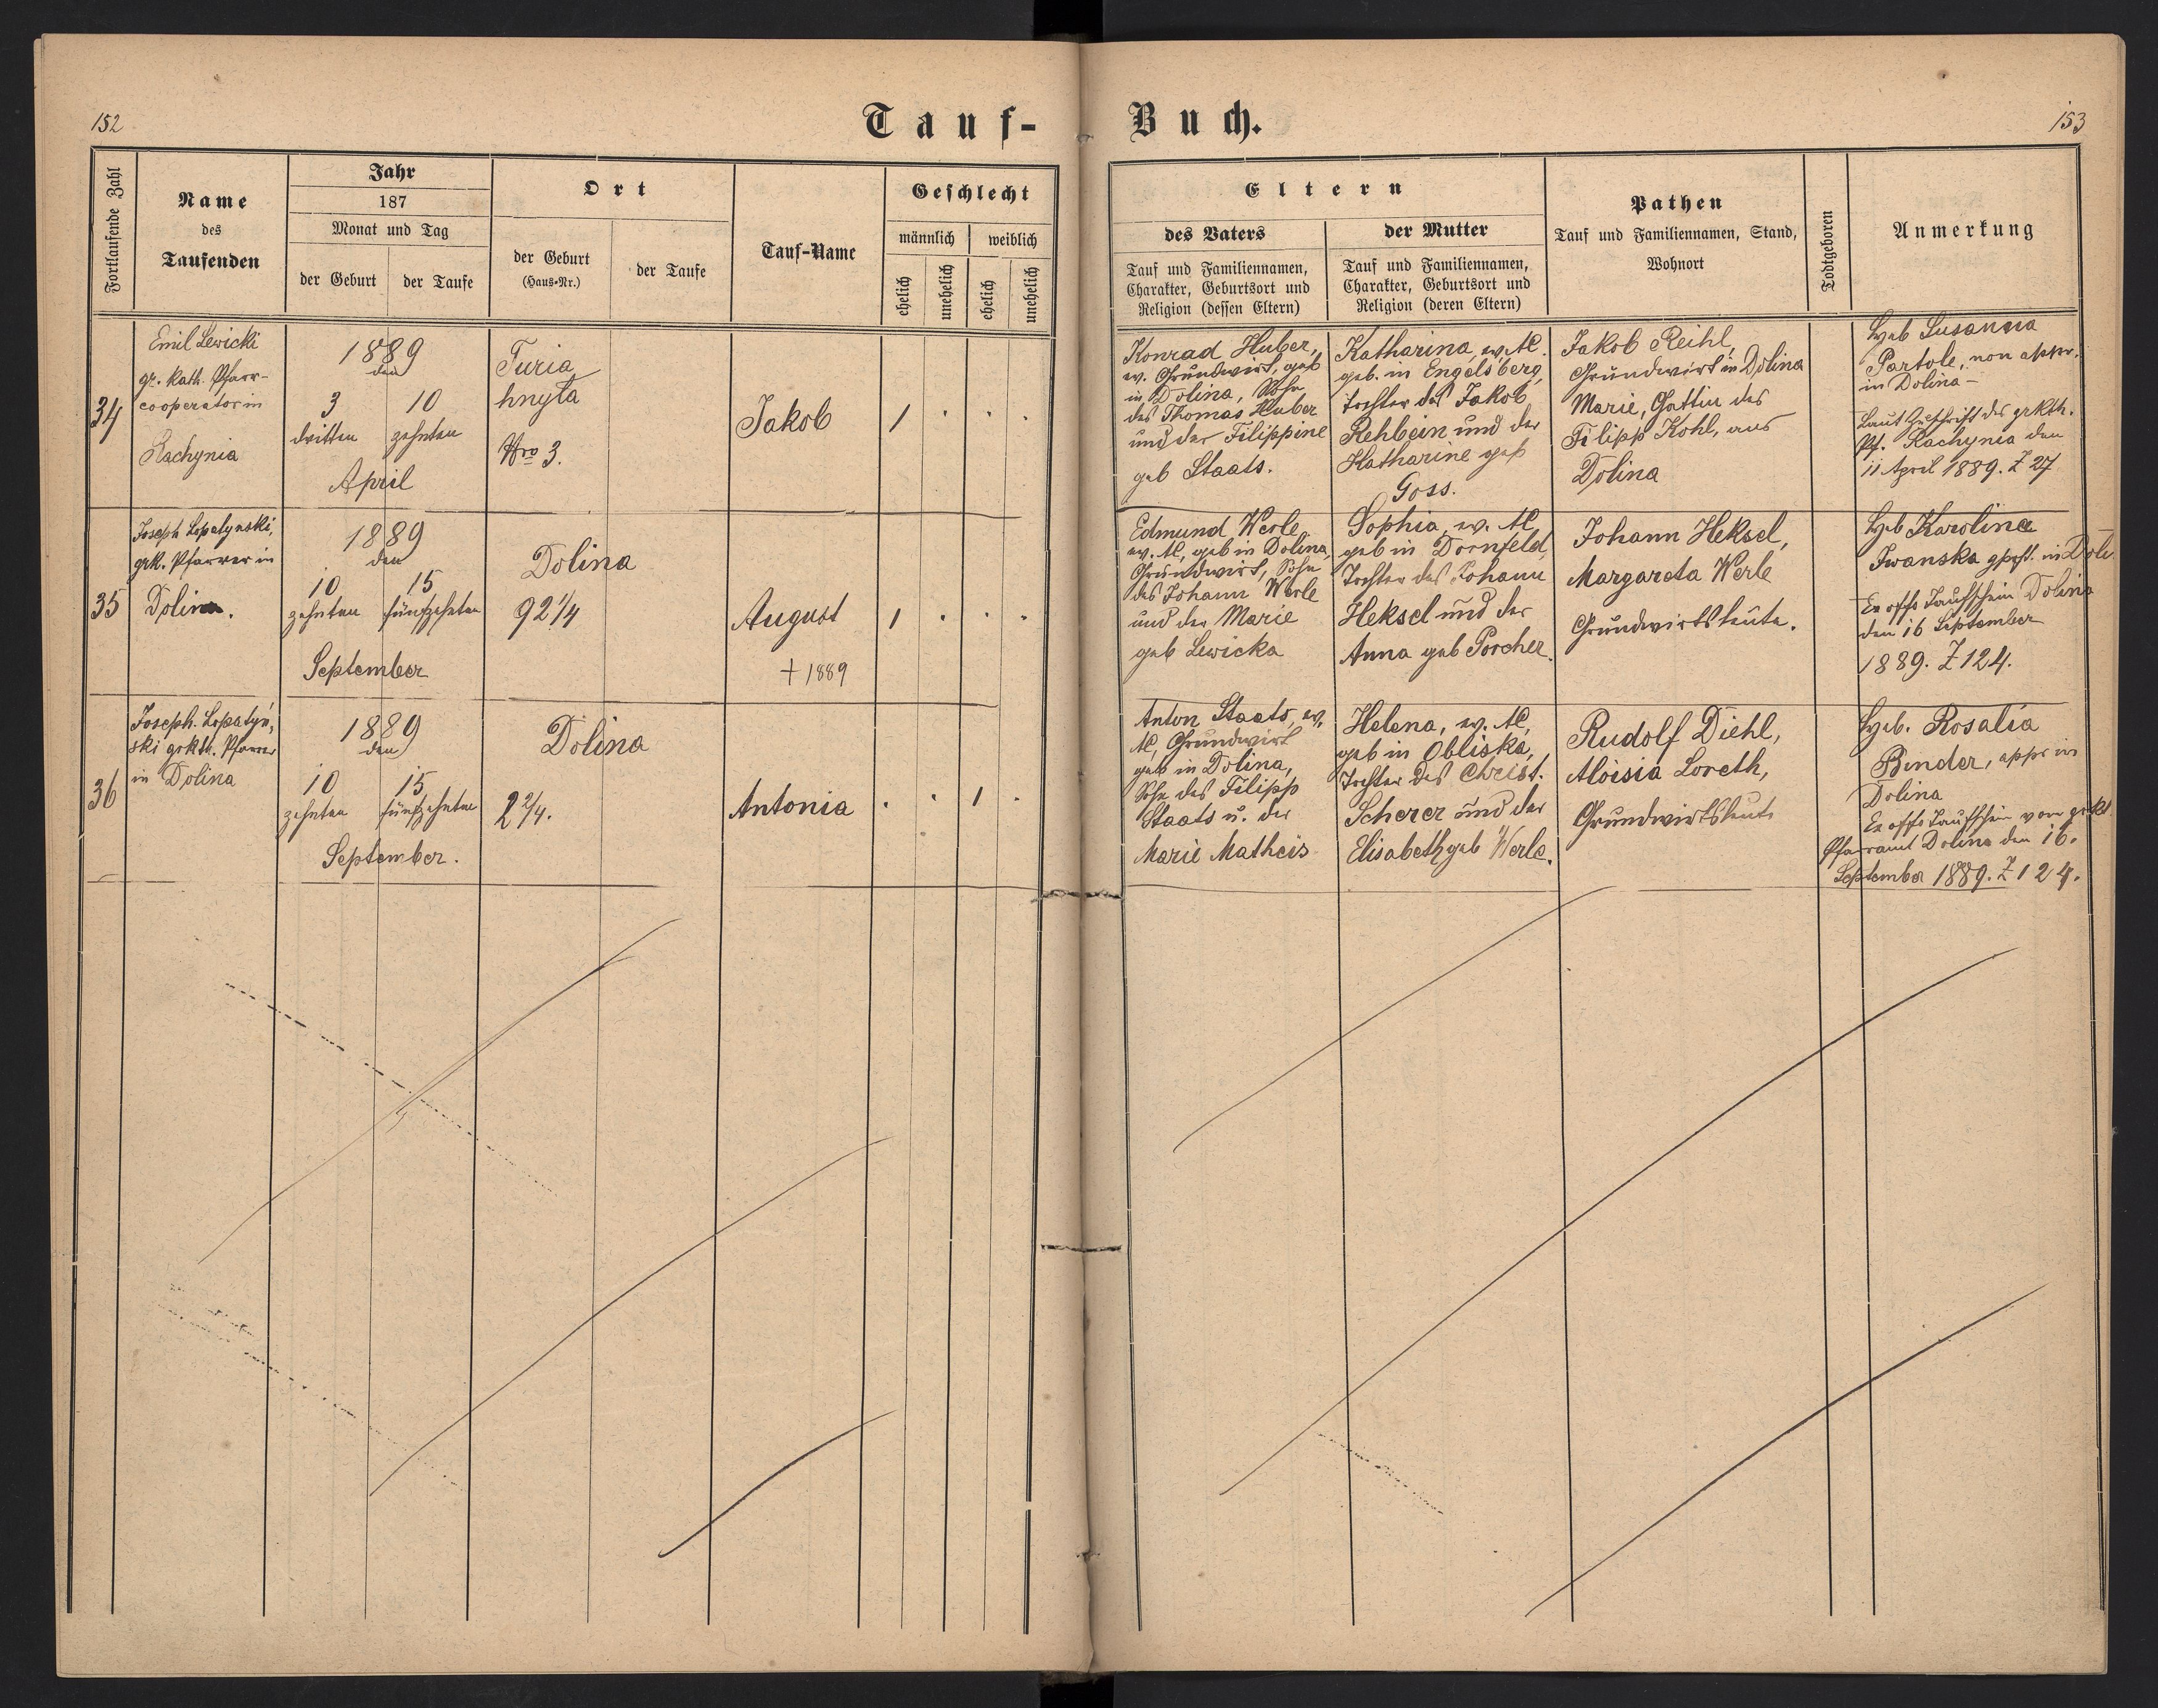 152
Tauf-
Fortlaufende Zahl
Name
des
Taufenden
Jahr
187
Monat und Tag
der Geburt
der Taufe
Ort
der Geburt
(Haus-Nr.)
der Taufe
Tauf-Name
Geschlecht
männlich
weiblich
ehelich
unehelich
ehelich
unehelich
34
Emil Lewicki
gr. kath. Pfarr-
cooperator in
Rachynia
1889
den
3 10
dritten zehnten
April
Turia
hnyta
Nro 3.
Jakob
1 . . .
35
Joseph Lopatynski,
grk. Pfarrer in
Dolina.
1889
den
10 15
zehnten fünfzehnten
September
Dolina
92 1/4
August
+ 1889
1 . . .
36
Joseph. Lopatyń,
ski grkth. Pfarrer
in Dolina
1889
den
10 15
zehnten fünfzehnten
September.
Dolina
2 2/4.
Antonia
. . 1 .
Buch.
153
Eltern
des Vaters
Tauf und Familiennamen,
Charakter, Geburtsort und
Religion (dessen Eltern)
der Mutter
Tauf und Familiennamen,
Charakter, Geburtsort und
Religion (deren Eltern)
Pathen
Tauf und Familiennamen, Stand,
Wohnort
Todtgeboren
Anmerkung
Konrad Huber,
ev. Grundwirt, geb
in Dolina, Sohn
des Thomas Huber
und der Filippine
geb Staats.
Katharina, ev. AC.
geb. in Engelsberg,
Tochter des Jakob
Rehbein und der
Katharine geb
Goss.
Jakob Reihl,
Grundwirt in Dolina
Marie, Gattin des
Filipp Kohl, aus
Dolina
Heb Susanna
Partole, non appr.
in Dolina –
Laut Zuschrift des grkth.
Pf. Rachynia den
11 April 1889. Z 27
Edmund Werle,
ev. AC, geb in Dolina,
Grundwirt, Sohn
des Johann Werle
und der Marie
geb Lewicka
Sophia, ev. AC,
geb in Dornfeld,
Tochter des Johann
Heksel und der
Anna geb Porcher.
Johann Heksel,
Margareta Werle
Grundwirtsleute.
Heb Karolina
Iwanska in Doli
Ex offo Taufschein Dolina
den 16 September
1889. Z 124.
Anton Staats, ev.
AC, Grundwirt
geb in Dolina,
Sohn des Filipp
Staats u. der
Marie Matheis
Helena, ev. AC,
geb in Obliska,
Tochter des Christ.
Scherer und der
Elisabeth geb Werle.
Rudolf Diehl,
Aloisia Loreth,
Grundwirtsleute
Heb. Rosalia
Binder, appr in
Dolina
Ex offo Taufschein vom grkt
Pfarramt Dolina den 16.
September 1889. Z 124.